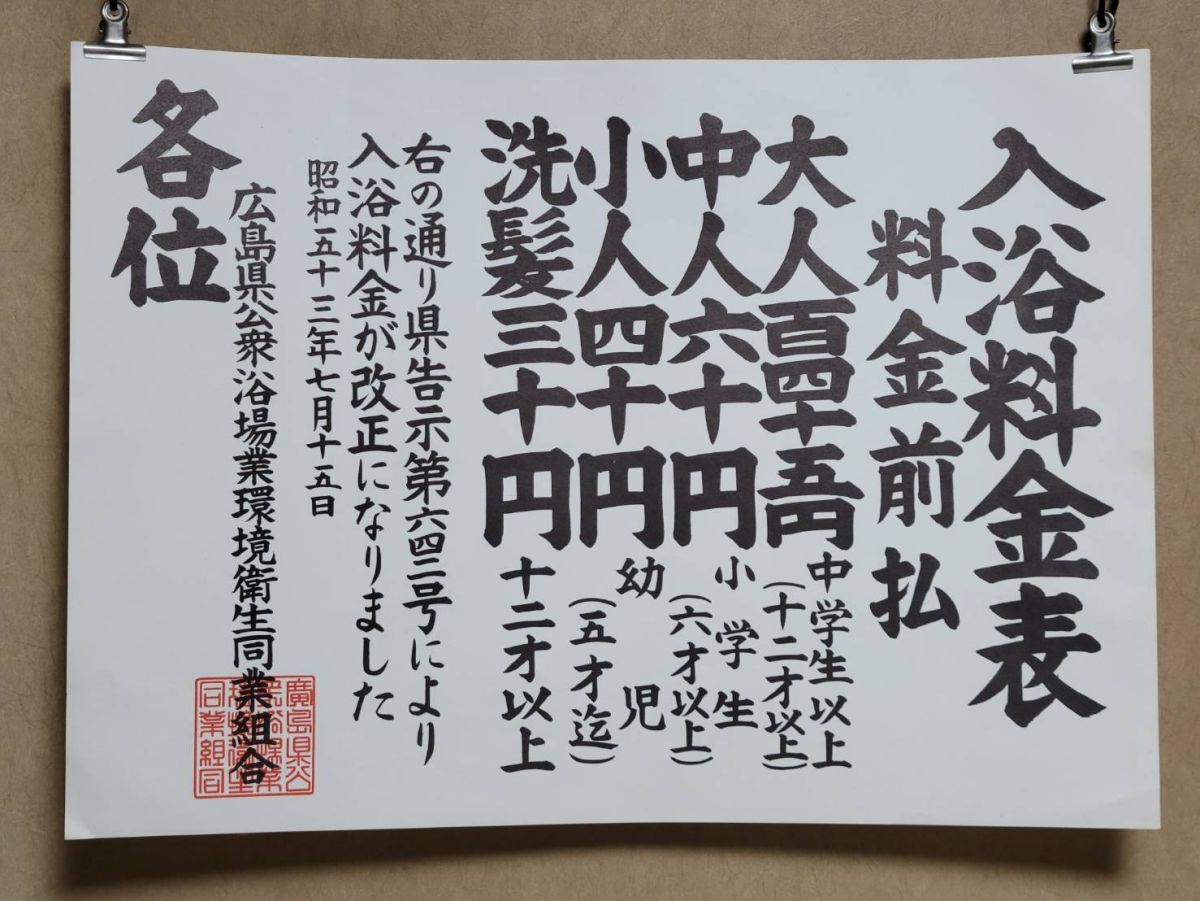 入浴料金表
料金前払
大人百四十五円 中学生以上(十二才以上)
中人六十円 小学生(六才以上)
小人四十円 幼児(五才迄)
洗髪三十円 十二才以上
右の通り県告示第六四二号により
入浴料金が改正になりました
昭和五十三年七月十五日
広島県公衆浴場業環境衛生同業組合
各位